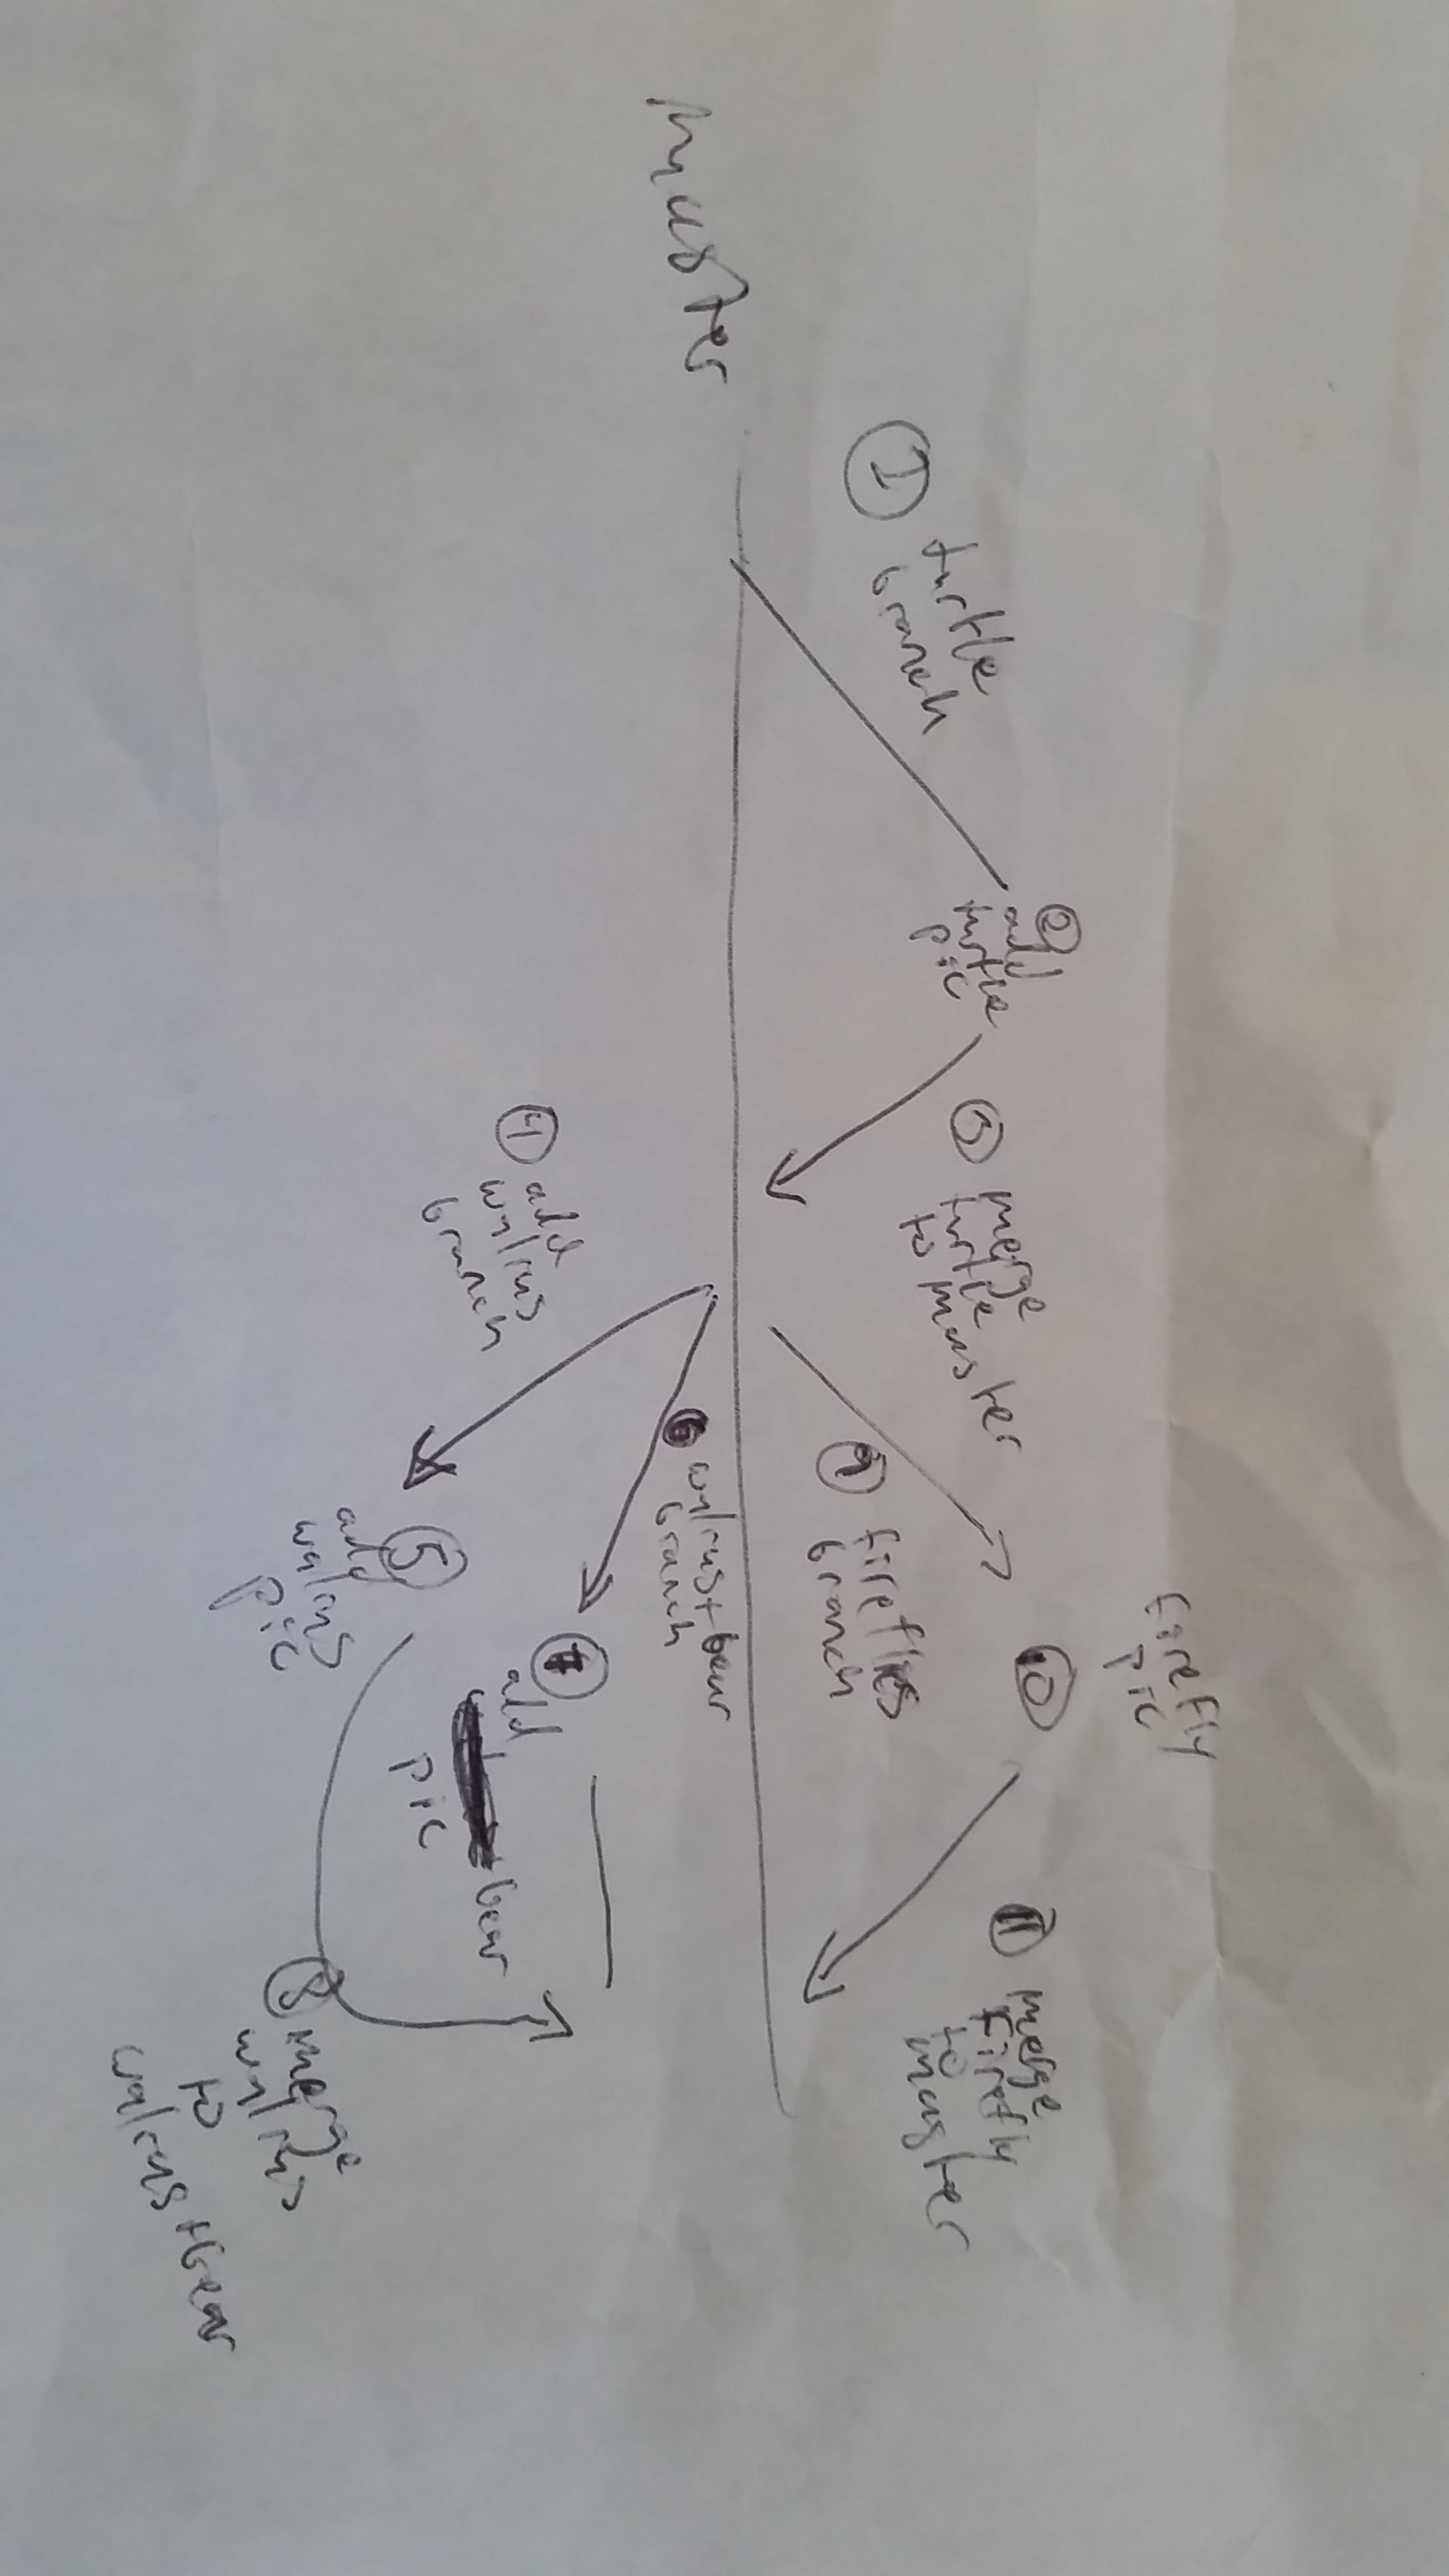 Master
① turtle
branch
②
add
turtle
pic
③ merge
turtle
to master
④ add
walrus
branch
⑤
add
walrus
pic
⑥ walrus+bear
branch
⑦
add
bear
pic
⑧ merge
walrus
to
walrus+bear
⑨ fireflies
branch
⑩
firefly
pic
⑪ merge
firefly
to
master